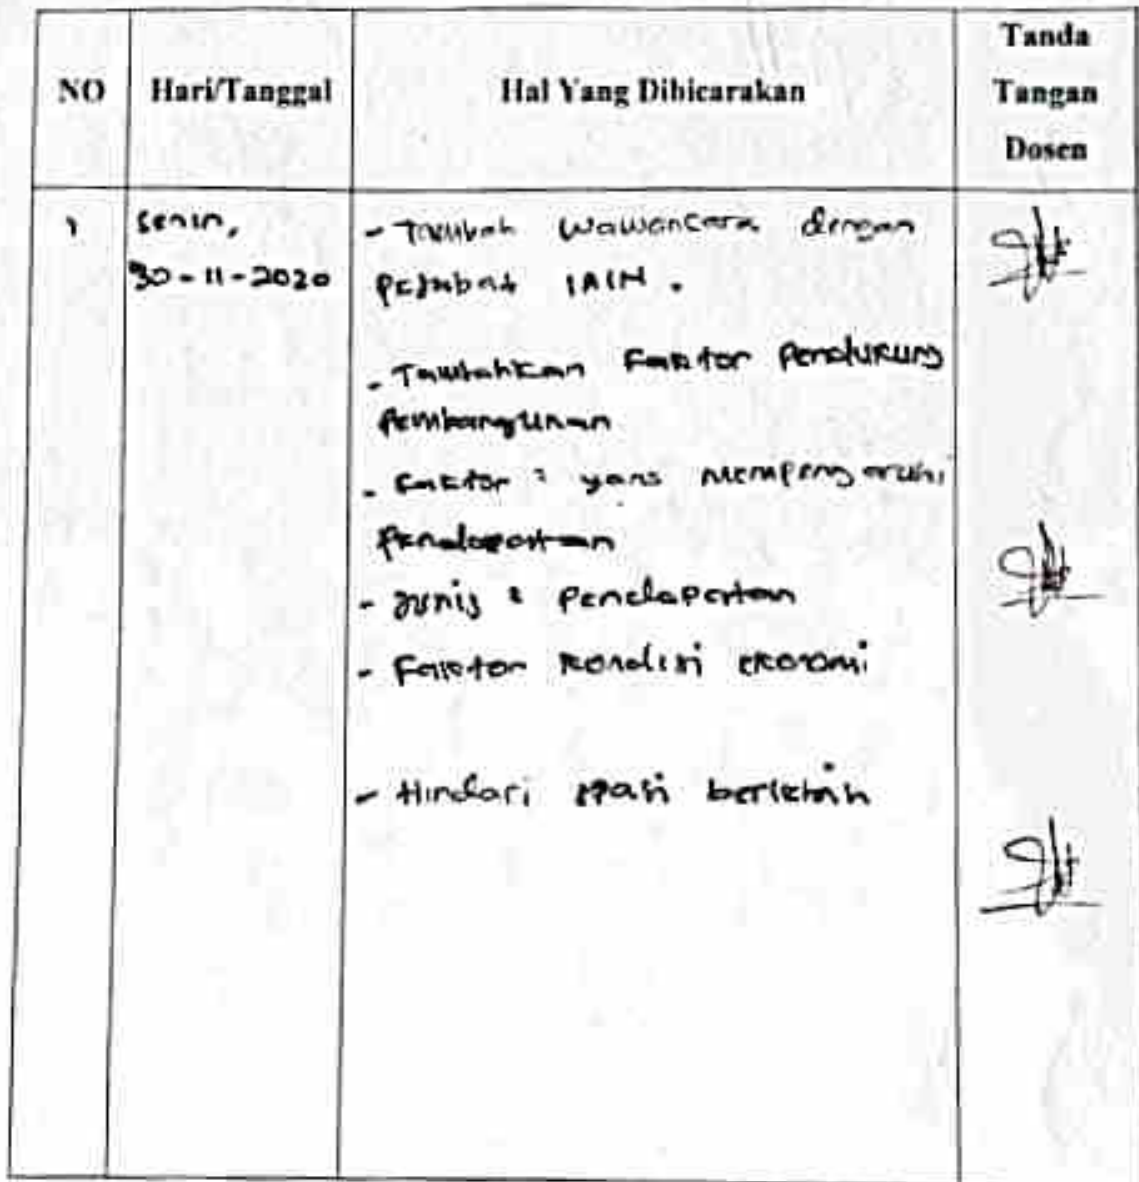 NO Hari/Tanggal Hal Yang Dibicarakan Tanda Tangan Dosen
1 Senin, - Tambah wawancara dengan
30-11-2020 Pejabat IAIN.
- Tambahkan Faktor Pendukung
Pembangunan
- Faktor² yang mempengaruhi
Pendapatan
- Jenis² Pendapatan
- Faktor kondisi ekonomi
- Hindari spasi berlebih